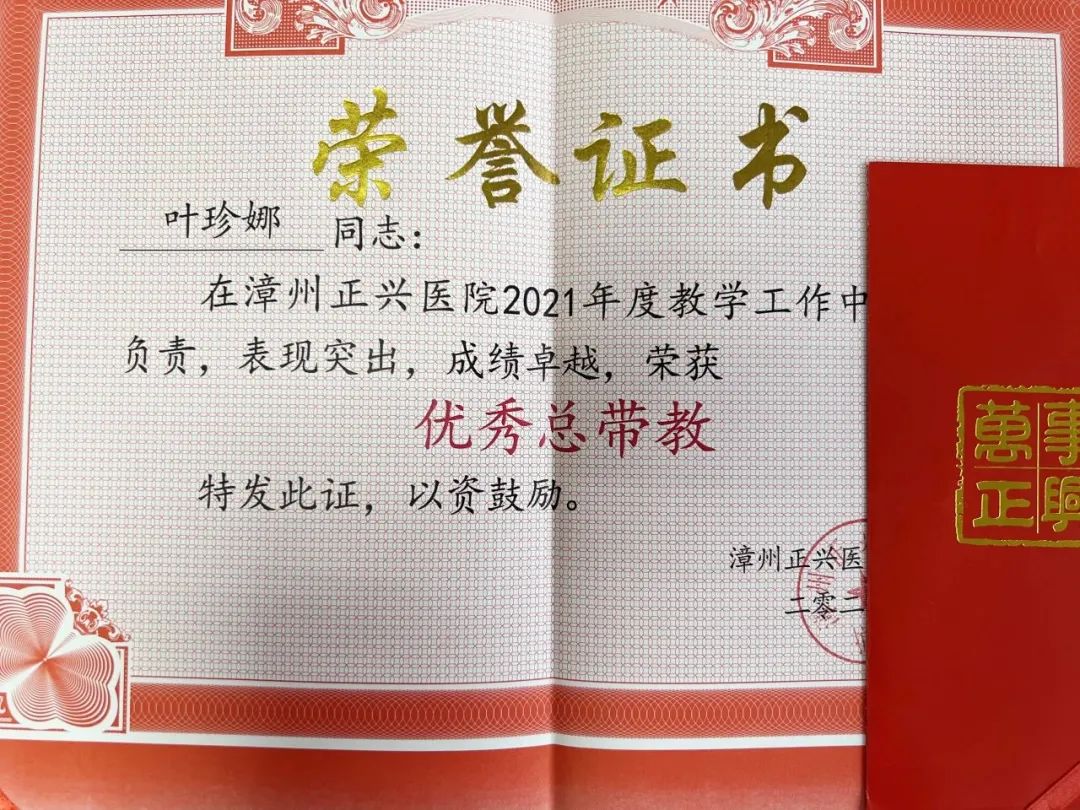 荣誉证书
叶珍娜 同志：
在漳州正兴医院2021年度教学工作中
负责，表现突出，成绩卓越，荣获
优秀总带教
特发此证，以资鼓励。
漳州正兴医
二零二
萬事
正興